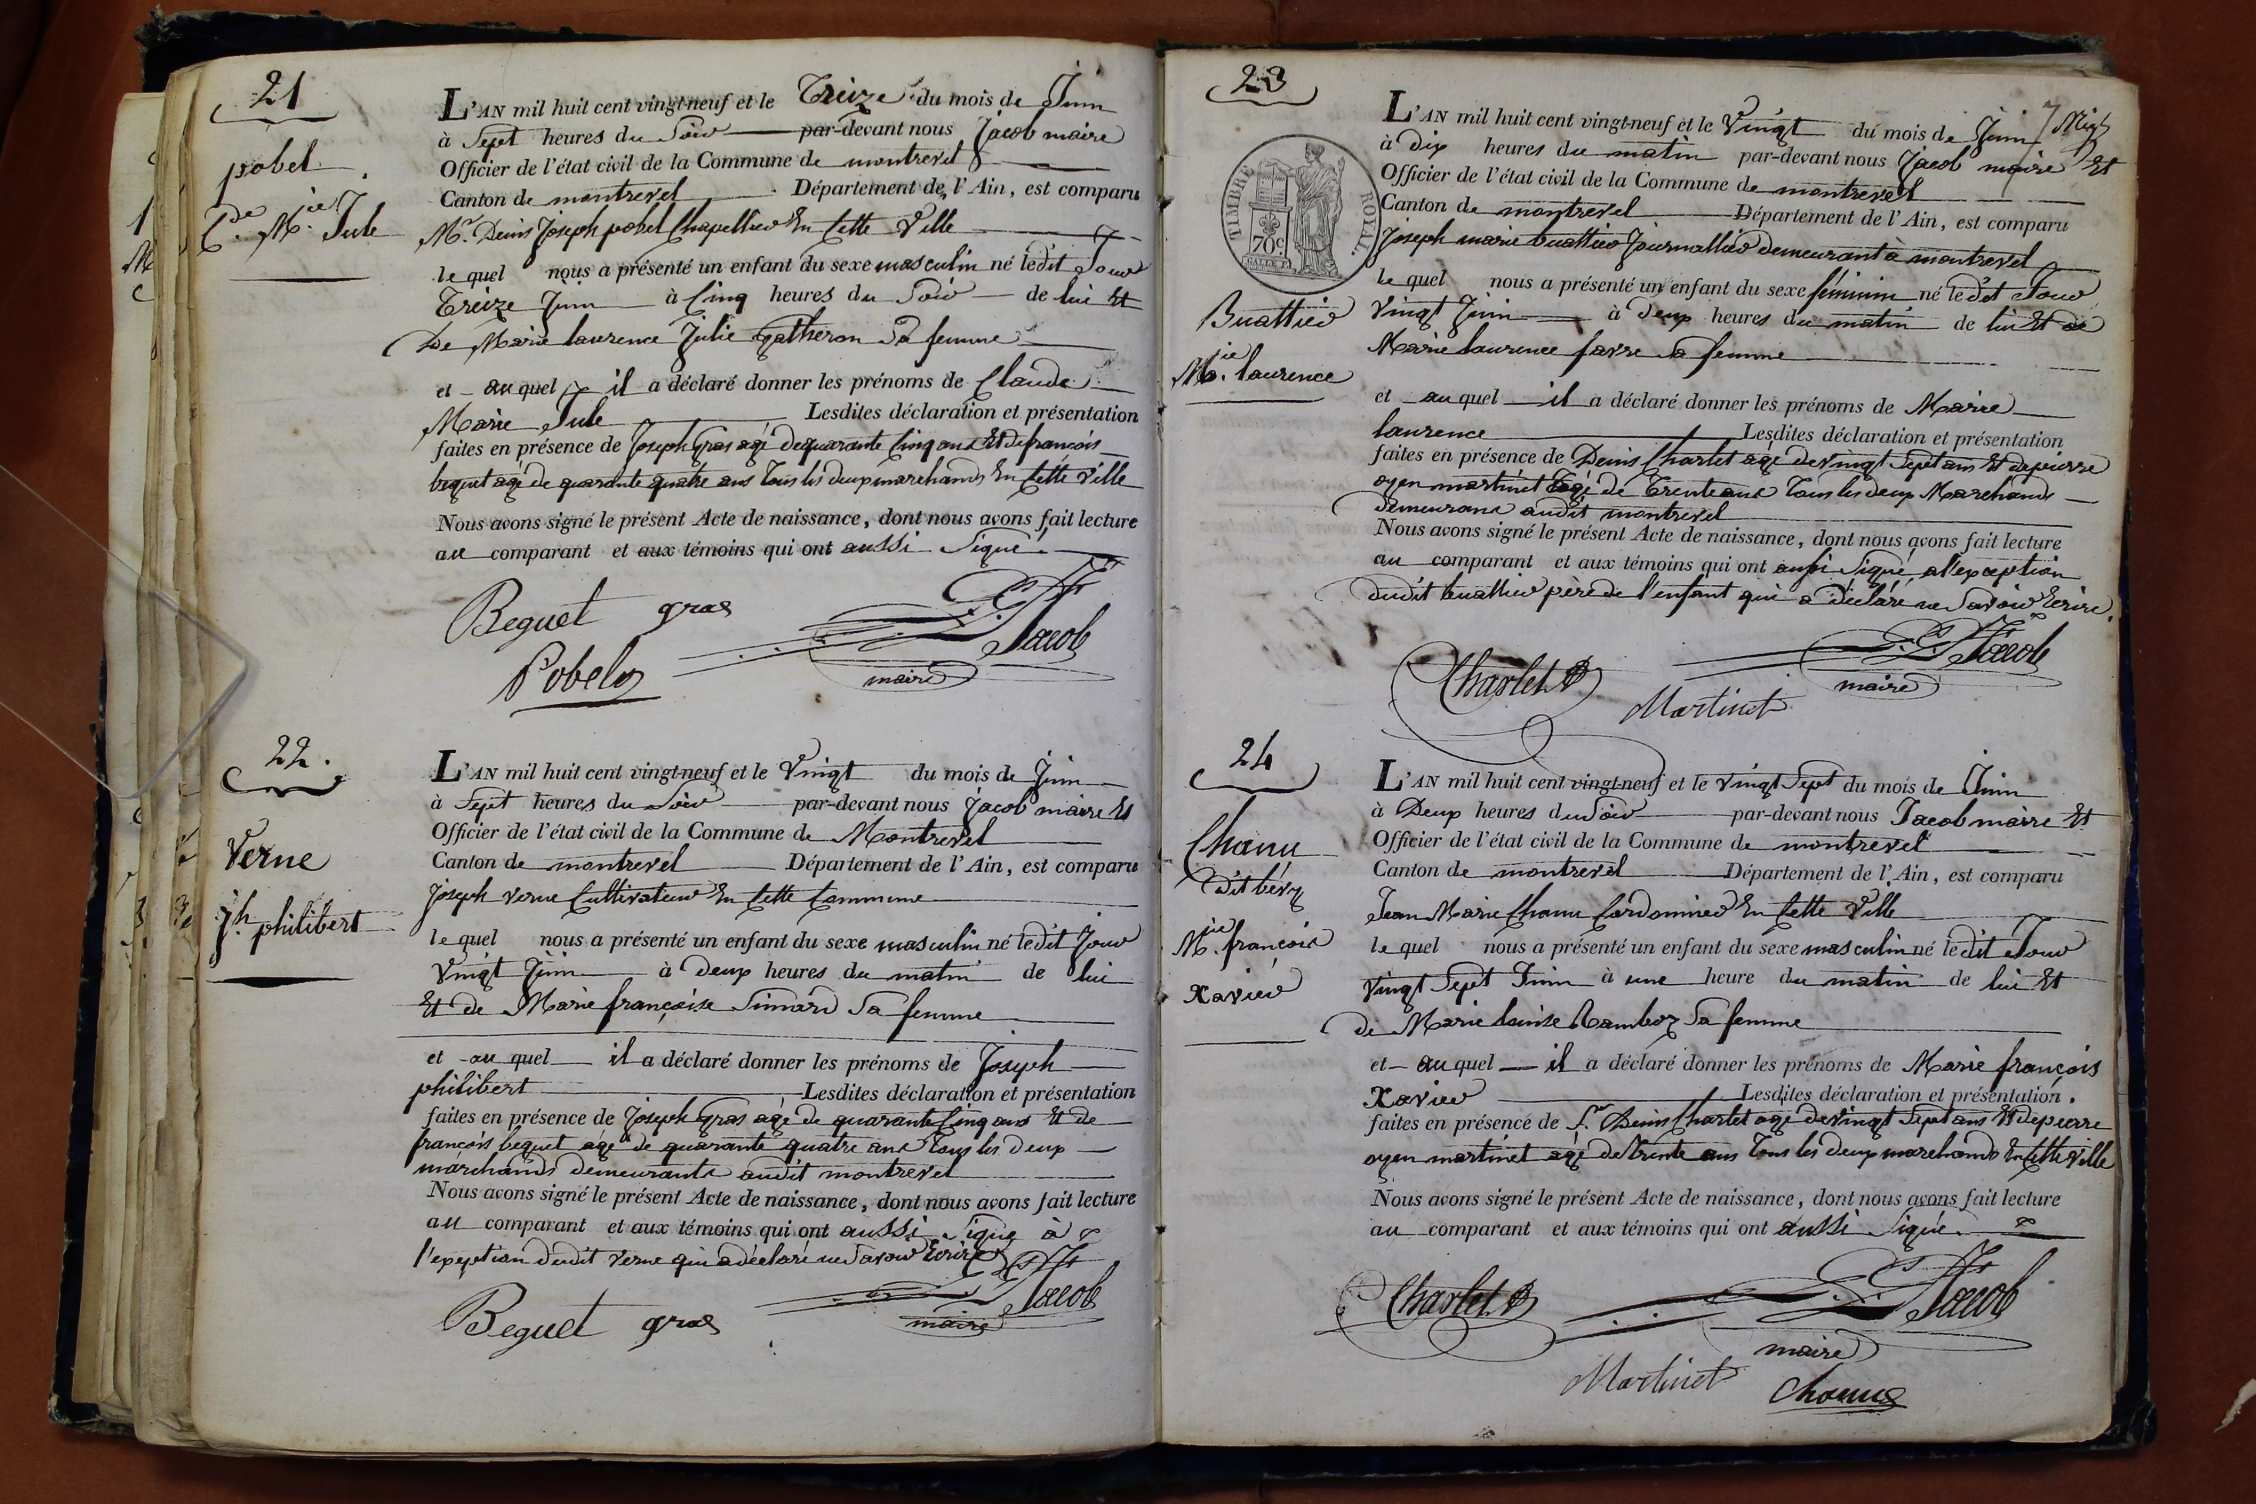 21
pobel
C.de M.ie Jule
L'AN mil huit cent vingt-neuf et le Treize du mois de Juin
à Sept heures du Soir par-devant nous Jacob maire
Officier de l'état civil de la Commune de montrevel
Canton de montrevel Département de l'Ain, est comparu
Mr. Denis Joseph pobel Chapellier En Cette Ville
le quel nous a présenté un enfant du sexe masculin né ledit Jour
Treize Juin à Cinq heures du Soir de lui Et
De Marie laurence Julie gatheron Sa femme
et au quel il a déclaré donner les prénoms de Claude
Marie Jule Lesdites déclaration et présentation
faites en présence de Joseph Gras agé de quarante Cinq ans Et de françois
beguet agé de quarante quatre ans Tous les deux marchands En Cette Ville
Nous avons signé le présent Acte de naissance, dont nous avons fait lecture
au comparant et aux témoins qui ont aussi Signé.
Beguet gras Jacob
Pobel maire
22.
Verne
Jh. philibert
L'AN mil huit cent vingt-neuf et le Vingt du mois de Juin
à Sept heures du Soir par-devant nous Jacob maire Et
Officier de l'état civil de la Commune de Montrevel
Canton de montrevel Département de l'Ain, est comparu
Joseph Verne Cultivateur En Cette Commune
le quel nous a présenté un enfant du sexe masculin né ledit Jour
Vingt Juin à Deux heures du matin de lui
Et de Marie françoise Simard Sa femme
et au quel il a déclaré donner les prénoms de Joseph
philibert Lesdites déclaration et présentation
faites en présence de Joseph Gras agé de quarante Cinq ans Et de
françois beguet agé de quarante quatre ans Tous les deux
marchands demeurants audit montrevel
Nous avons signé le présent Acte de naissance, dont nous avons fait lecture
au comparant et aux témoins qui ont aussi Signé à
l'exception dudit Verne qui a déclaré ne Savoir Ecrire
Beguet gras Jacob
maire
23
TIMBRE ROYAL.
70c
Buattier
M.ie laurence
L'AN mil huit cent vingt-neuf et le Vingt du mois de Juin
à dix heures du matin par-devant nous Jacob maire Et
Officier de l'état civil de la Commune de montrevel
Canton de montrevel Département de l'Ain, est comparu
Joseph marie buattier Journallier demeurant à montrevel
le quel nous a présenté un enfant du sexe féminin né ledit Jour
Vingt Juin à Deux heures du matin de lui Et de
Marie laurence favre Sa femme
et au quel il a déclaré donner les prénoms de Marie
laurence Lesdites déclaration et présentation
faites en présence de Denis Charlet agé de Vingt Sept ans Et de pierre
oyen martinet agé de Trente ans Tous les deux Marchands
demeurans audit montrevel
Nous avons signé le présent Acte de naissance, dont nous avons fait lecture
au comparant et aux témoins qui ont aussi Signé, a l'exception
dudit buattier père de l'enfant qui a déclaré ne Savoir Ecrire.
Charlet Jacob
Martinet maire
24
Chanu
dit béry
M.ie françois
Xavier
L'AN mil huit cent vingt-neuf et le Vingt Sept du mois de Juin
à Deux heures du Soir par-devant nous Jacob maire Et
Officier de l'état civil de la Commune de montrevel
Canton de montrevel Département de l'Ain, est comparu
Jean Marie Chanu Cordonnier En Cette Ville
le quel nous a présenté un enfant du sexe masculin né ledit Jour
Vingt Sept Juin à une heure du matin de lui Et
de Marie louise Ramboz Sa femme
et au quel il a déclaré donner les prénoms de Marie françois
Xavier Lesdites déclaration et présentation.
faites en présence de Sr. Denis Charlet agé de Vingt Sept ans Et de pierre
oyen martinet agé de Trente ans Tous les deux marchands En Cette Ville
Nous avons signé le présent Acte de naissance, dont nous avons fait lecture
au comparant et aux témoins qui ont aussi Signé.
Charlet Jacob
maire
Martinet Chanu